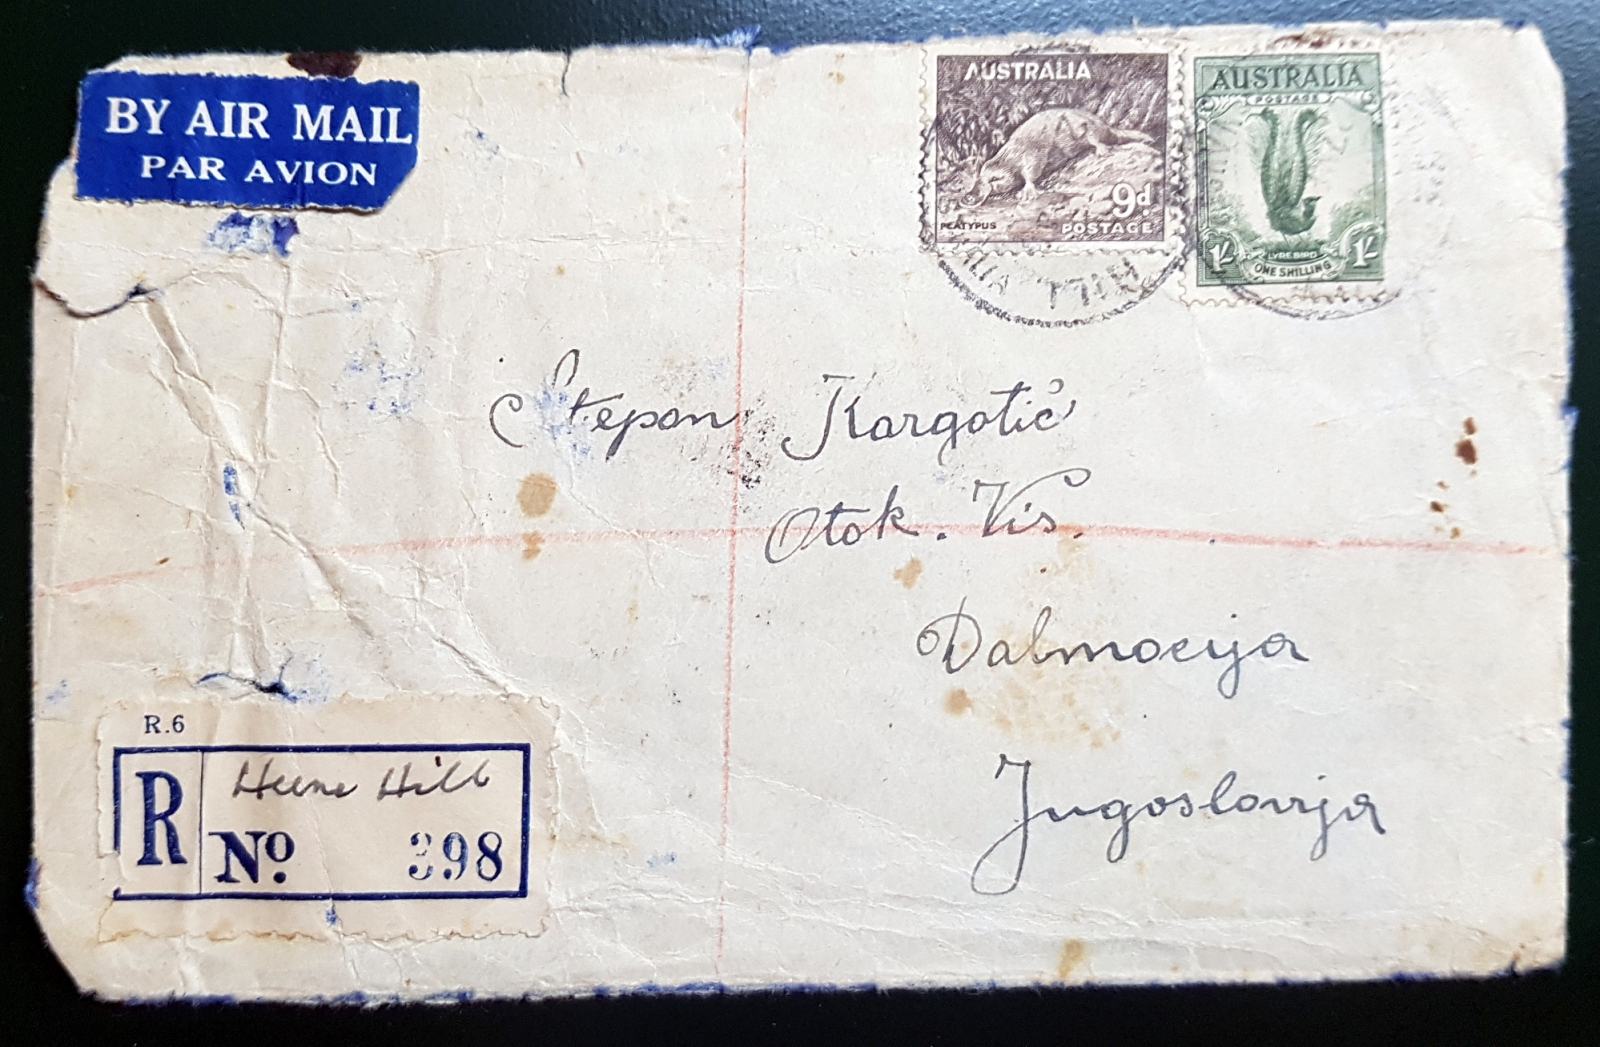 BY AIR MAIL
PAR AVION
AUSTRALIA
PLATYPUS
9d.
POSTAGE
AUSTRALIA
POSTAGE
1/- LYRE BIRD 1/-
ONE SHILLING
Stepan Kargotić
Otok. Vis.
Dalmacija
Jugoslavija
R.6
R
Herne Hill
No. 398